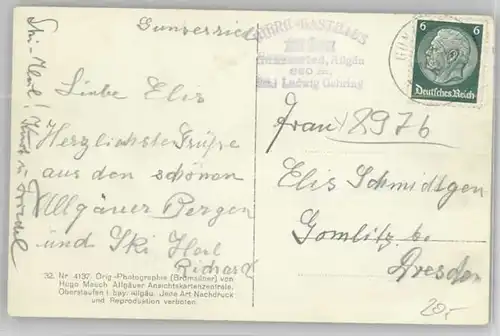 Gunzesried
Ski-Heil!
Liebe Elis
Herzlichste Grüße
aus den schönen
Allgäuer Bergen
und Ski Heil
Richard
32. Nr. 4137. Orig.-Photographie (Bromsilber) von
Hugo Mauch Allgäuer Ansichtskartenzentrale,
Oberstaufen i. bay. Allgäu. Jede Art Nachdruck
und Reproduktion verboten.
BERG-GASTHAUS
Gunzesried, Allgäu
Ludwig Gehring
6
6
Deutsches Reich
Frau 8976
Elis Schmidtgen
Gomlitz be
Dresden
20,-